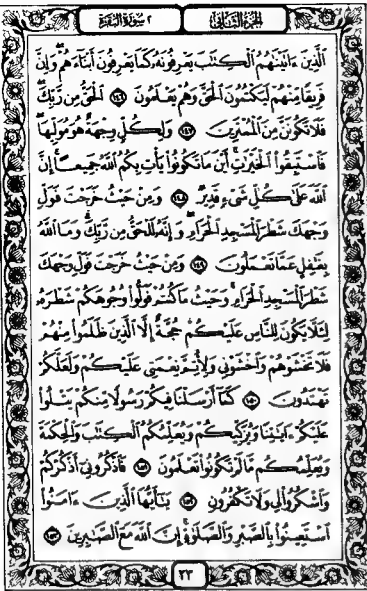 الجزء الثاني
٢ سورة البقرة
الَّذِينَ ءَاتَيْنَٰهُمُ الْكِتَٰبَ يَعْرِفُونَهُۥ كَمَا يَعْرِفُونَ أَبْنَآءَهُمْ ۖ وَإِنَّ
فَرِيقًا مِّنْهُمْ لَيَكْتُمُونَ الْحَقَّ وَهُمْ يَعْلَمُونَ ١٤٦ الْحَقُّ مِن رَّبِّكَ ۖ
فَلَا تَكُونَنَّ مِنَ الْمُمْتَرِينَ ١٤٧ وَلِكُلٍّ وِجْهَةٌ هُوَ مُوَلِّيهَا ۖ
فَاسْتَبِقُوا۟ الْخَيْرَٰتِ ۚ أَيْنَ مَا تَكُونُوا۟ يَأْتِ بِكُمُ اللَّهُ جَمِيعًا ۚ إِنَّ
اللَّهَ عَلَىٰ كُلِّ شَىْءٍ قَدِيرٌ ١٤٨ وَمِنْ حَيْثُ خَرَجْتَ فَوَلِّ
وَجْهَكَ شَطْرَ الْمَسْجِدِ الْحَرَامِ ۖ وَإِنَّهُۥ لَلْحَقُّ مِن رَّبِّكَ ۗ وَمَا اللَّهُ
بِغَٰفِلٍ عَمَّا تَعْمَلُونَ ١٤٩ وَمِنْ حَيْثُ خَرَجْتَ فَوَلِّ وَجْهَكَ
شَطْرَ الْمَسْجِدِ الْحَرَامِ ۚ وَحَيْثُ مَا كُنتُمْ فَوَلُّوا۟ وُجُوهَكُمْ شَطْرَهُۥ
لِئَلَّا يَكُونَ لِلنَّاسِ عَلَيْكُمْ حُجَّةٌ إِلَّا الَّذِينَ ظَلَمُوا۟ مِنْهُمْ
فَلَا تَخْشَوْهُمْ وَاخْشَوْنِى وَلِأُتِمَّ نِعْمَتِى عَلَيْكُمْ وَلَعَلَّكُمْ
تَهْتَدُونَ ١٥٠ كَمَآ أَرْسَلْنَا فِيكُمْ رَسُولًا مِّنكُمْ يَتْلُوا۟
عَلَيْكُمْ ءَايَٰتِنَا وَيُزَكِّيكُمْ وَيُعَلِّمُكُمُ الْكِتَٰبَ وَالْحِكْمَةَ
وَيُعَلِّمُكُم مَّا لَمْ تَكُونُوا۟ تَعْلَمُونَ ١٥١ فَاذْكُرُونِىٓ أَذْكُرْكُمْ
وَاشْكُرُوا۟ لِى وَلَا تَكْفُرُونِ ١٥٢ يَٰٓأَيُّهَا الَّذِينَ ءَامَنُوا۟
اسْتَعِينُوا۟ بِالصَّبْرِ وَالصَّلَوٰةِ ۚ إِنَّ اللَّهَ مَعَ الصَّٰبِرِينَ ١٥٣
٢٣